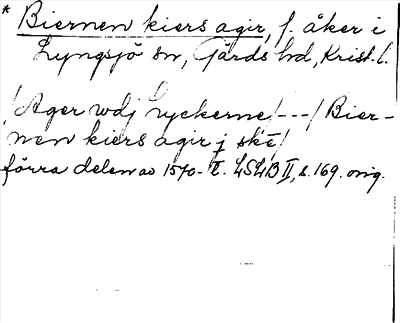 * Biernen kiers agir, f. åker i
Lyngsjö sn, Gärds hd, Krist. l.
/Ager wdj Lyckerne/---/Bier-
nen kiers agir j skē/
förra delen av 1570-t. LSLB II, s. 169. orig.